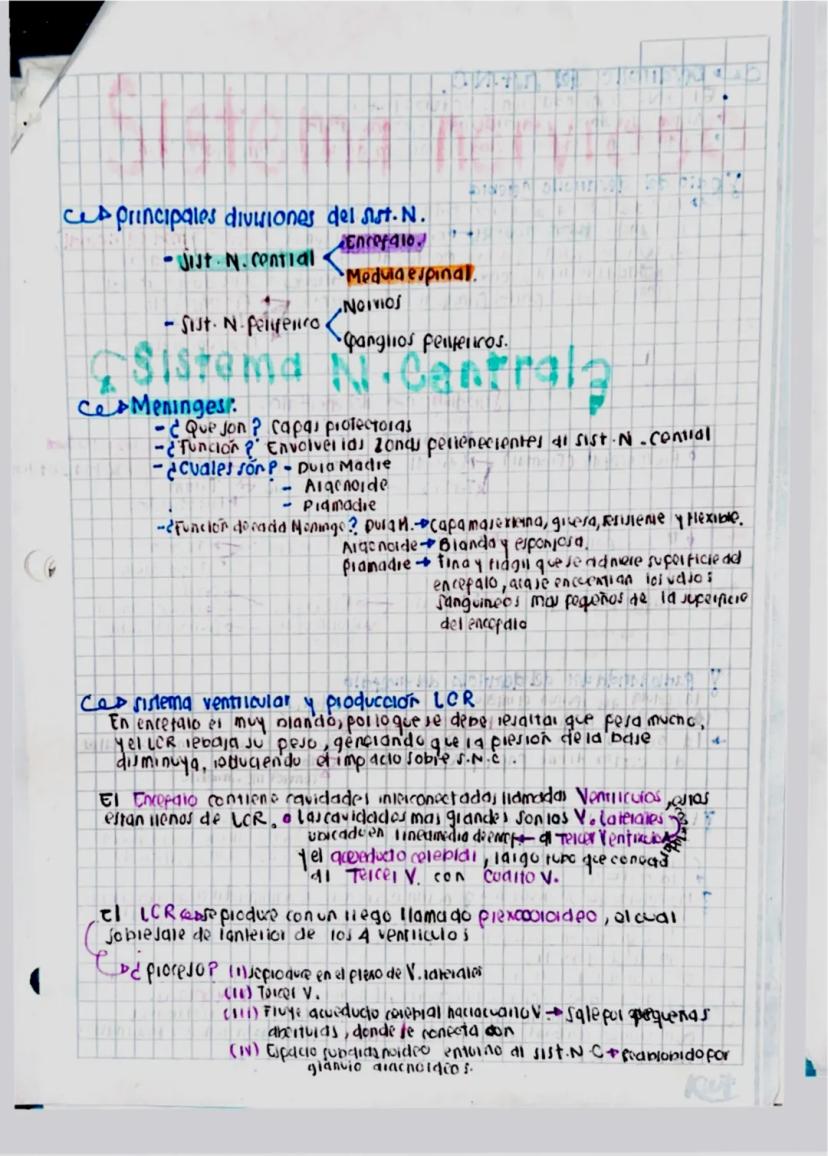 Sistema nervioso
principales divisiones del sist. N.
- Sist. N. central
Encefalo.
Medula espinal.
- Sist. N. periferico
Nervios
Ganglios perifericos.
¿Sistema N. Central?
Meninges:
- ¿Que son? Capas protectoras
- ¿Función? Envolver las zonas pertenecientes al sist. N. central
- ¿Cuales són? - Dura Madre
- Aracnoide
- Piamadre
- ¿Función de cada Meninge? Dura M. → Capa mas externa, gruesa, resistente y flexible.
Aracnoide → Blanda y esponjosa.
Piamadre → fina y fragil que se adhiere superficie del
encefalo, aca se encuentran los vasos
sanguineos mas pequeños de la superficie
del encefalo
sistema ventricular y producción LCR
En encefalo es muy blando, por lo que se debe resaltar que pesa mucho,
y el LCR rebaja su peso, generando que la presion de la base
disminuya, reduciendo el impacto sobre S.N.C.
El Encefalo contiene cavidades interconectadas llamadas Ventriculos, estos
estan llenos de LCR. • las cavidades mas grandes son los V. laterales
ubicado en linea media de encf ← al Tercer Ventriculo
y el acueducto cerebral, largo tubo que conecta
al Tercer V. con Cuarto V.
El LCR se produce con un riego llamado plexo coroideo, el cual
sobresale de interior de los 4 ventriculos
¿proceso? (I) se produce en el plexo de V. laterales
(II) Tercer V.
(III) Fluye acueducto cerebral hacia cuarto V → Sale por pequeñas
aberturas, donde se conecta con
(IV) Espacio subaracnoideo entorno al sist. N. C → reabsorbido por
aracnoideos.